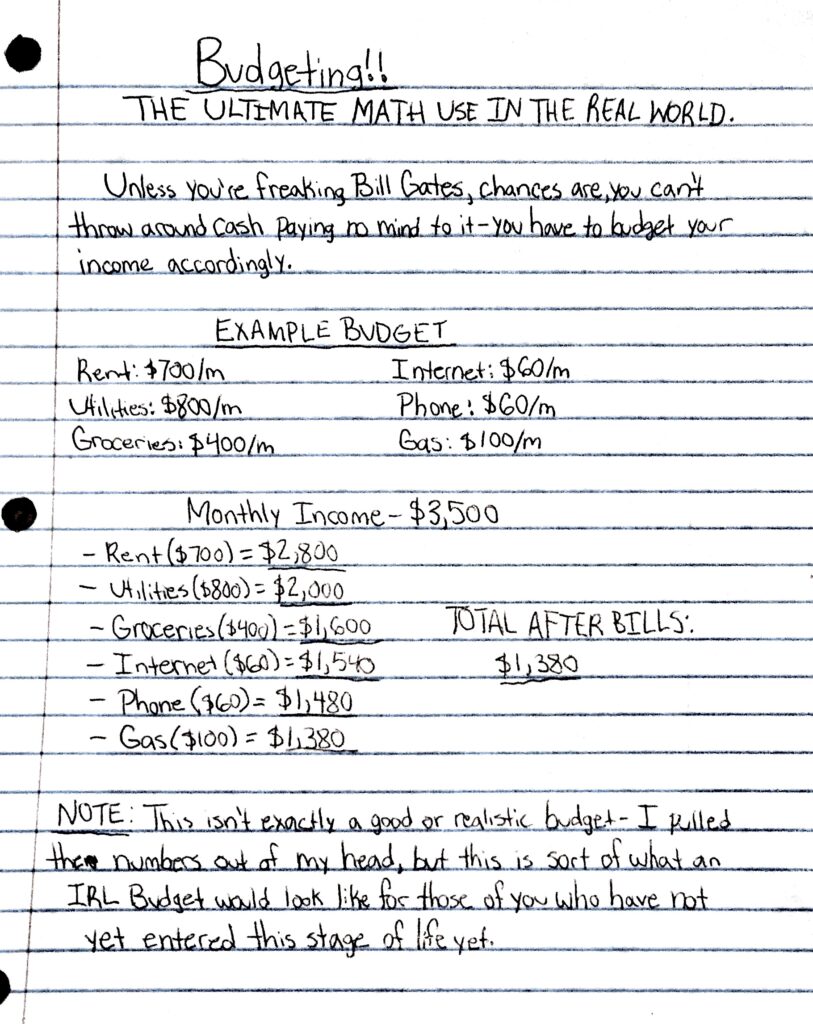 Budgeting!!
THE ULTIMATE MATH USE IN THE REAL WORLD.
Unless you're freaking Bill Gates, chances are, you can't
throw around cash paying no mind to it - you have to budget your
income accordingly.
EXAMPLE BUDGET
Rent: $700/m
Internet: $60/m
Utilities: $800/m
Phone: $60/m
Groceries: $400/m
Gas: $100/m
Monthly Income - $3,500
- Rent ($700) = $2,800
- Utilities ($800) = $2,000
- Groceries ($400) = $1,600
- Internet ($60) = $1,540
- Phone ($60) = $1,480
- Gas ($100) = $1,380
TOTAL AFTER BILLS:
$1,380
NOTE: This isn't exactly a good or realistic budget - I pulled
the numbers out of my head, but this is sort of what an
IRL Budget would look like for those of you who have not
yet entered this stage of life yet.